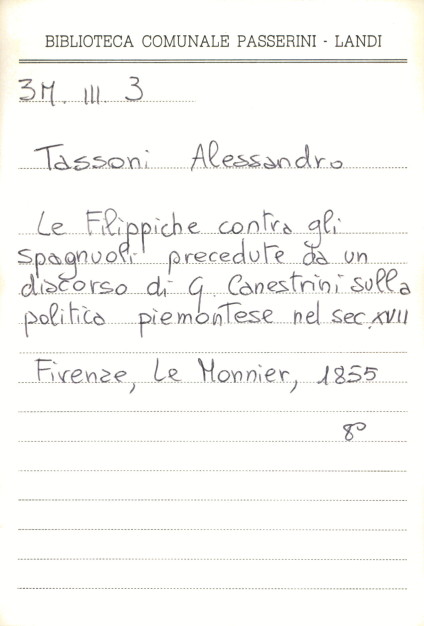 BIBLIOTECA COMUNALE PASSERINI - LANDI
3M. III. 3
Tassoni Alessandro
Le Filippiche contra gli
spagnuoli precedute da un
discorso di G. Canestrini sulla
politica piemontese nel sec. XVII
Firenze, Le Monnier, 1855
8°